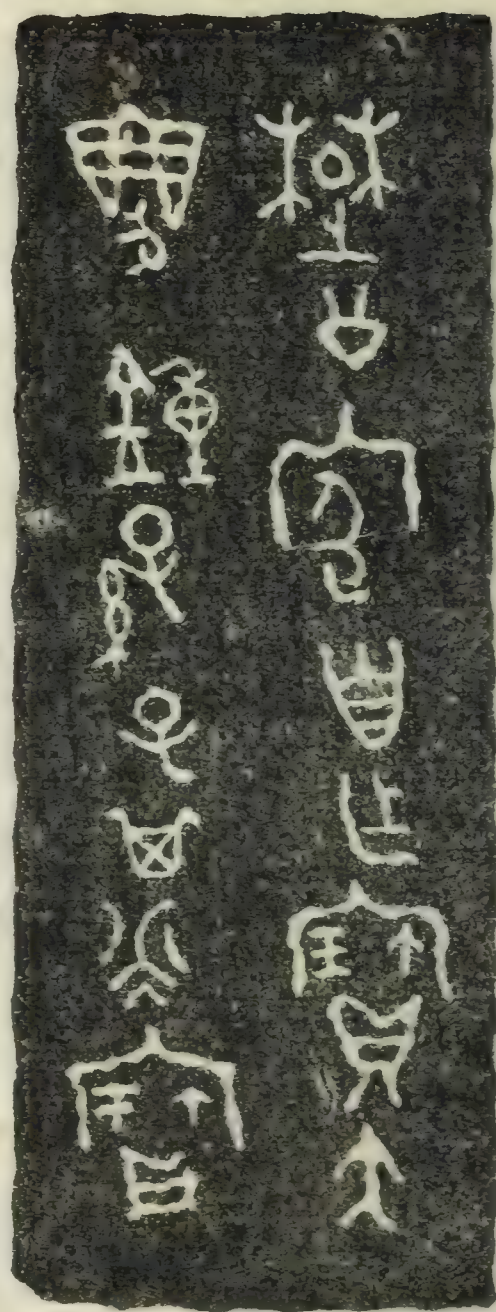 楚公豪自乍寶大
鐘孫子其永寶